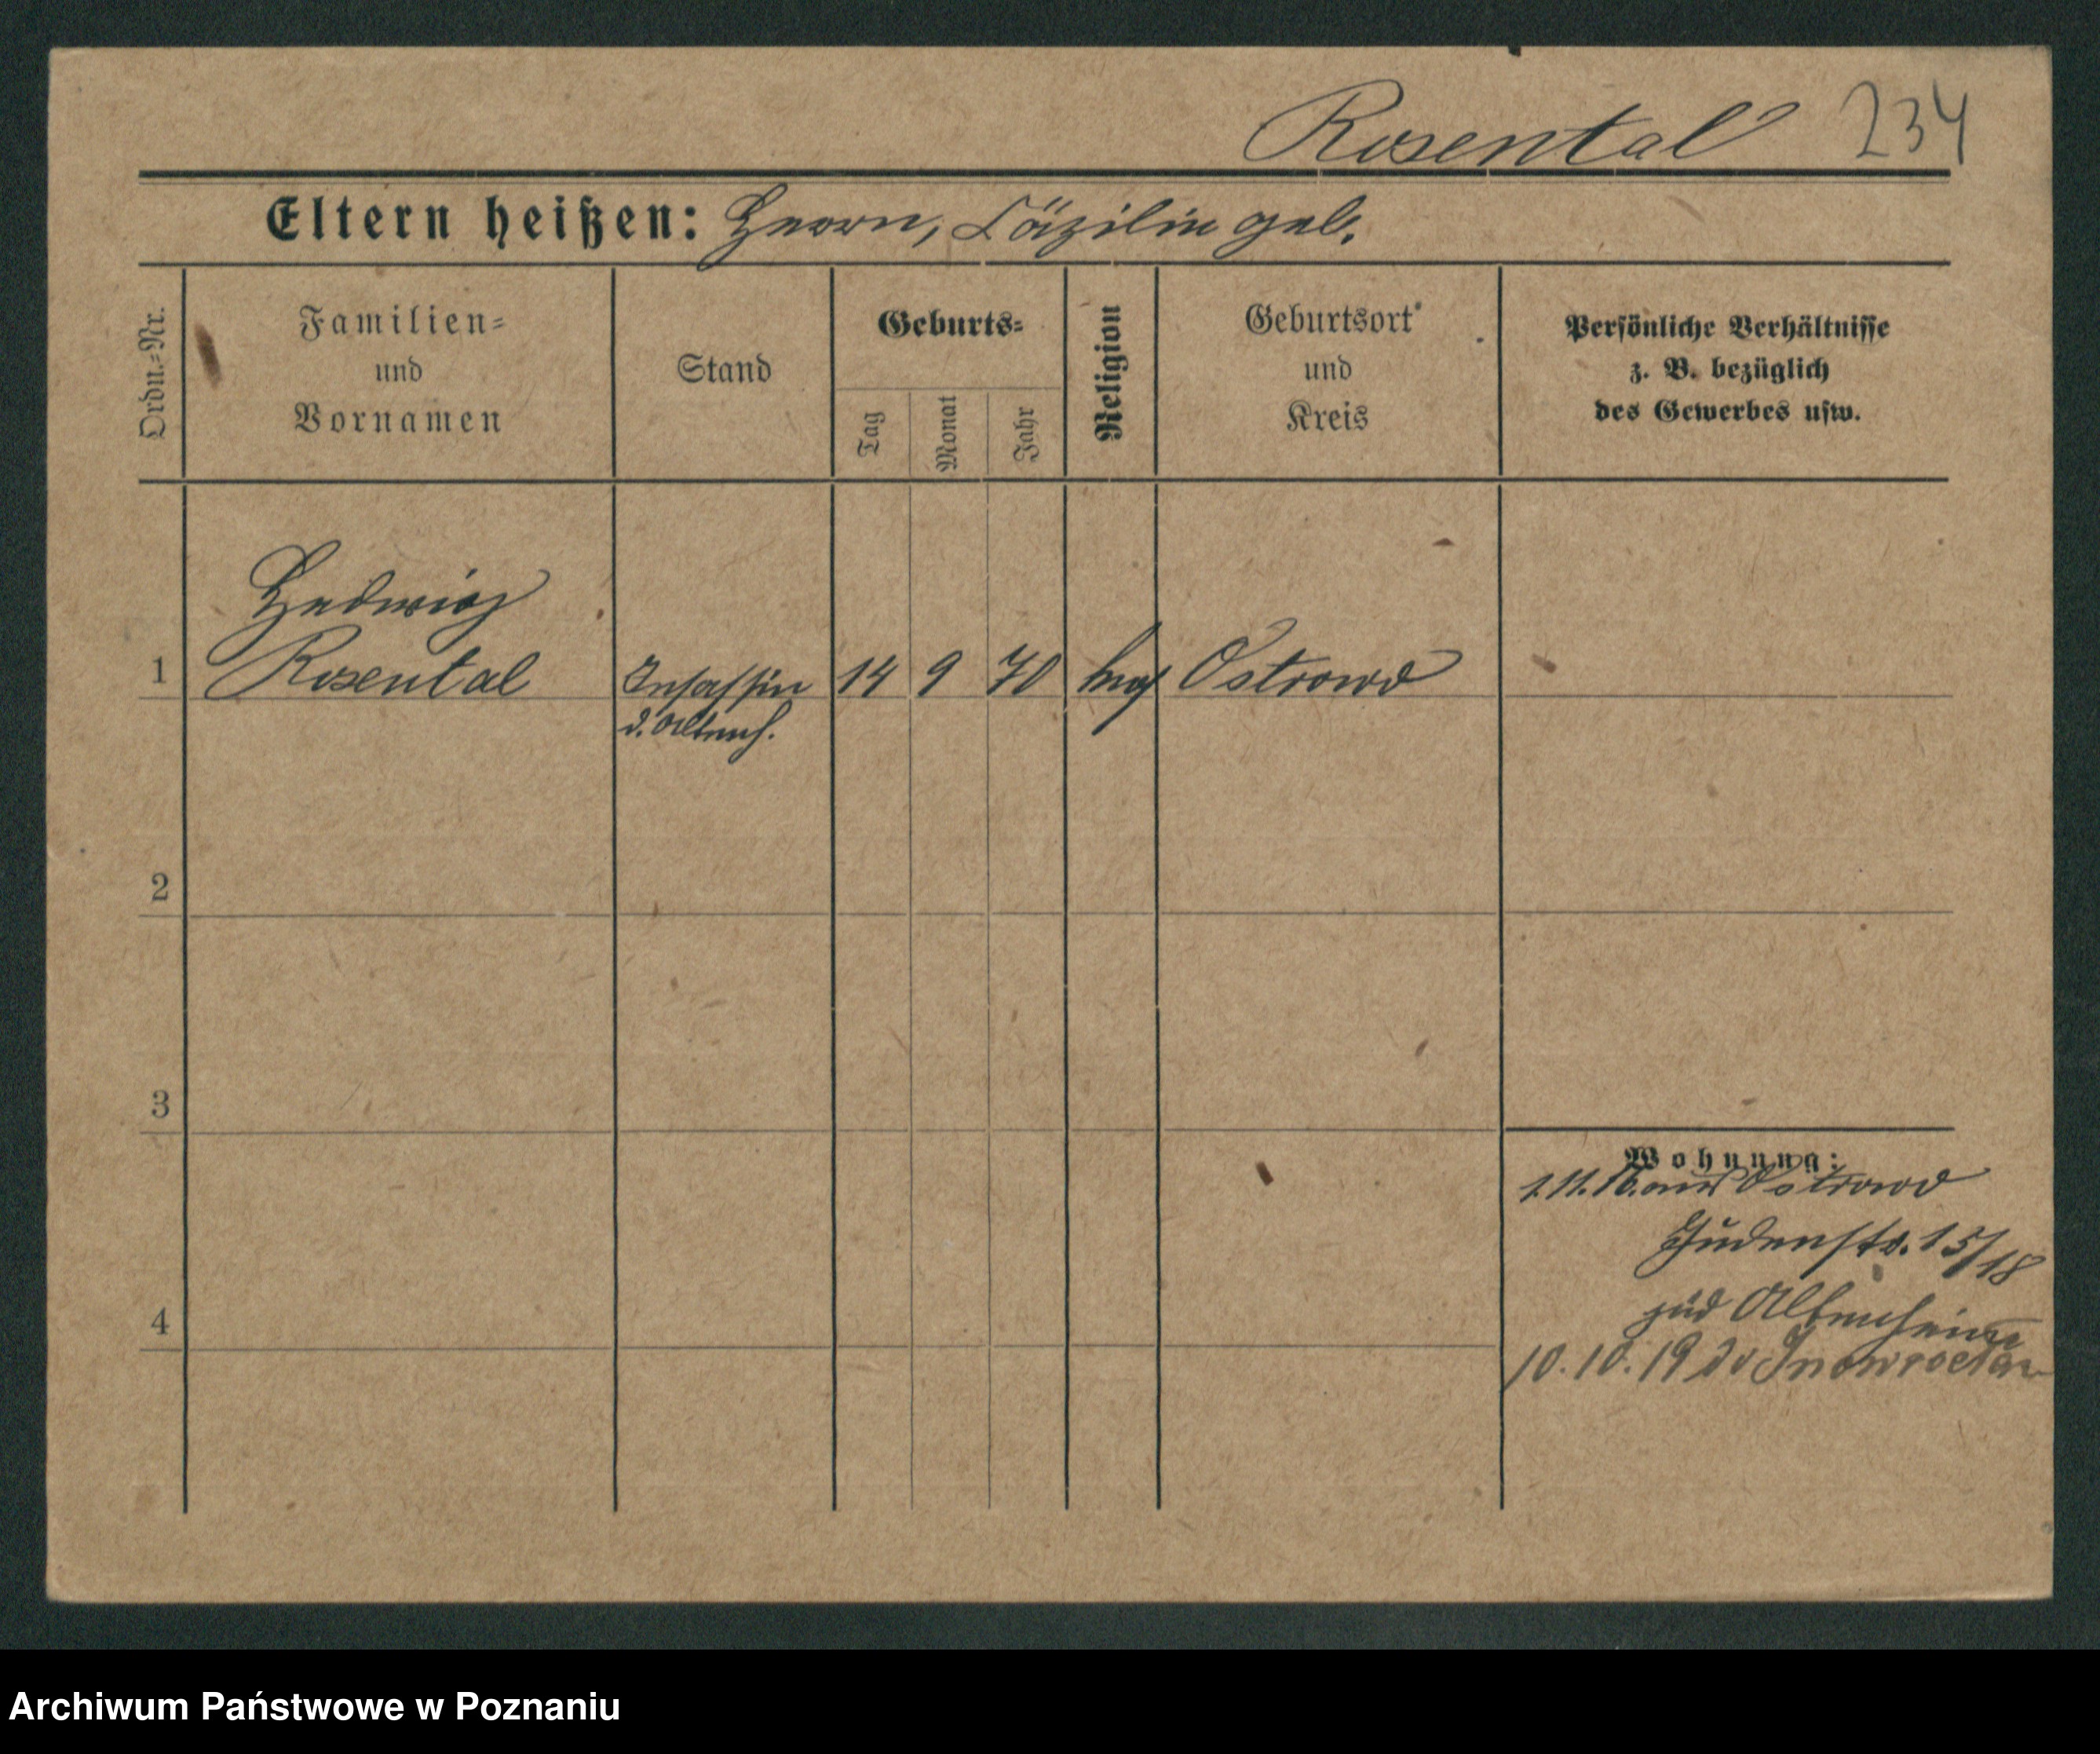 Rosental 234
Eltern heißen: Herrn, Cäzilie geb.
Ordn.=Nr.
Familien=
und
Vornamen
Stand
Geburts=
Tag
Monat
Jahr
Religion
Geburtsort
und
Kreis
Persönliche Verhältnisse
z. B. bezüglich
des Gewerbes usw.
Hedwig
1 Rosental Insassin 14 9 70 Ostrowo
d. Altersh.
2
3
4
Wohnung:
1.11.16. aus Ostrowo
Judenstr. 15/18
jüd Altersheim
10.10.19 Inowroclaw
Archiwum Państwowe w Poznaniu